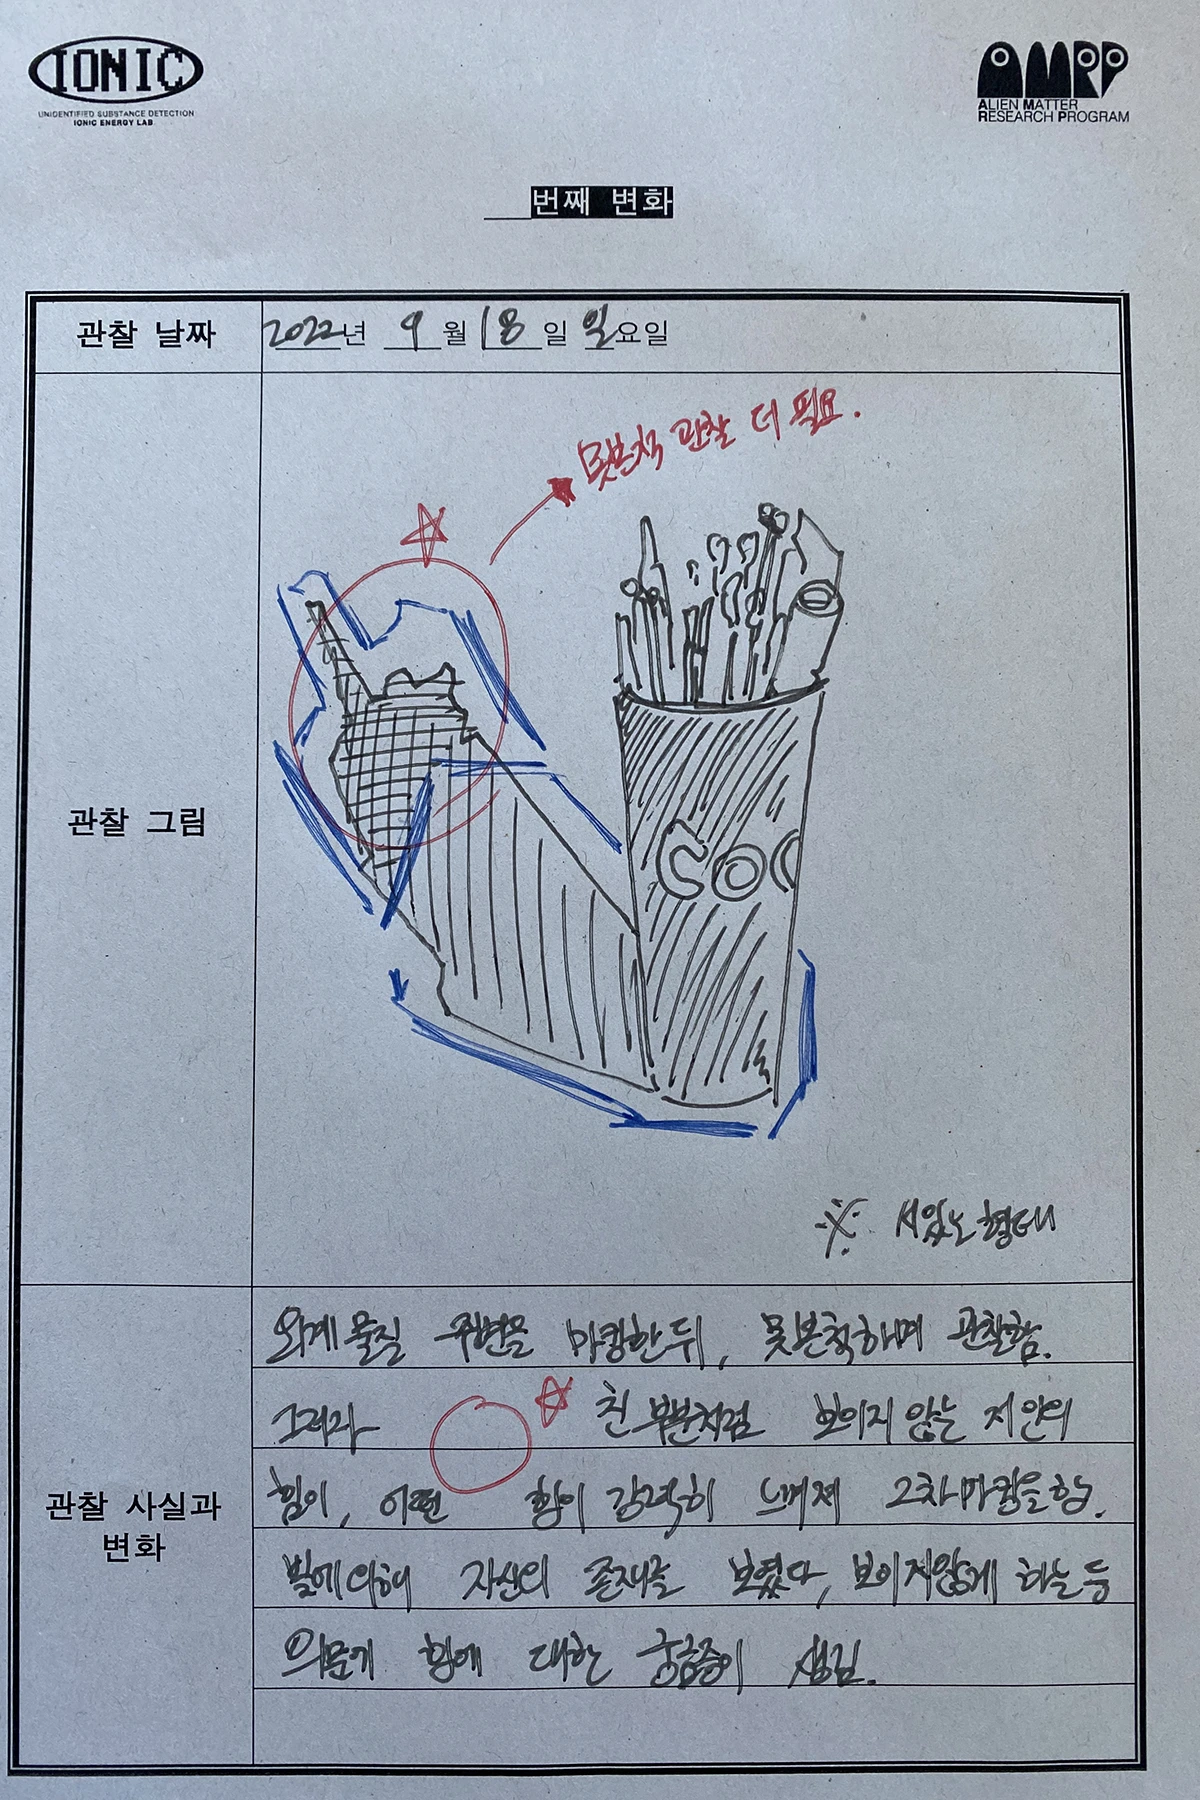 IONIC
UNIDENTIFIED SUBSTANCE DETECTION
IONIC ENERGY LAB.
AMRP
ALIEN MATTER
RESEARCH PROGRAM
번째 변화
관찰 날짜
2022년 9월 18일 일요일
못본척 관찰 더 필요.
관찰 그림
COC
※ 형태
외계물질 주변을 마킹한 뒤, 못본척하며 관찰함.
그러자 친 부분처럼 보이지 않는 저 안의
힘이, 어떤 힘이 강력히 느껴져 2차 마킹을 함.
관찰 사실과
변화
빛에 의해 자신의 존재를 보였다, 보이지않게 하는 등
의문에 힘에 대한 궁금증이 생김.